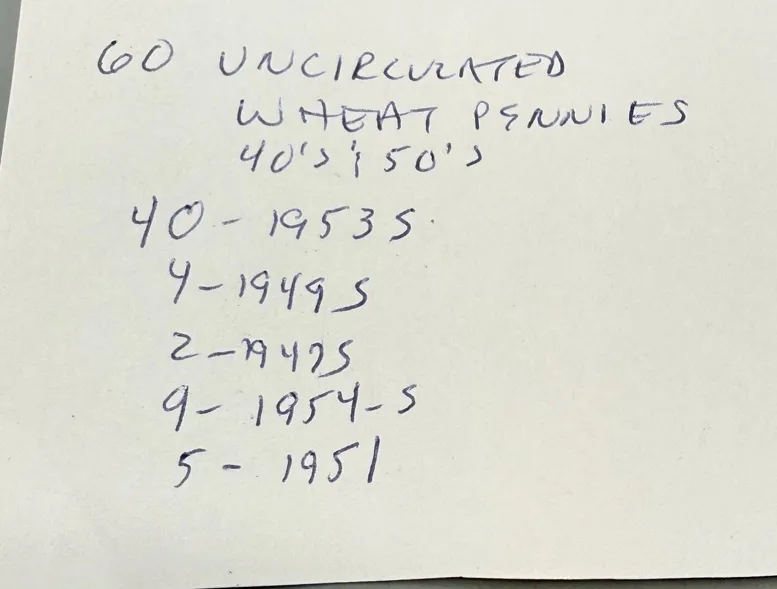 60 UNCIRCULATED
WHEAT PENNIES
40's & 50's
40 - 1953 S.
4 - 1949 S
2 - 1947 S
9 - 1954 - S
5 - 1951